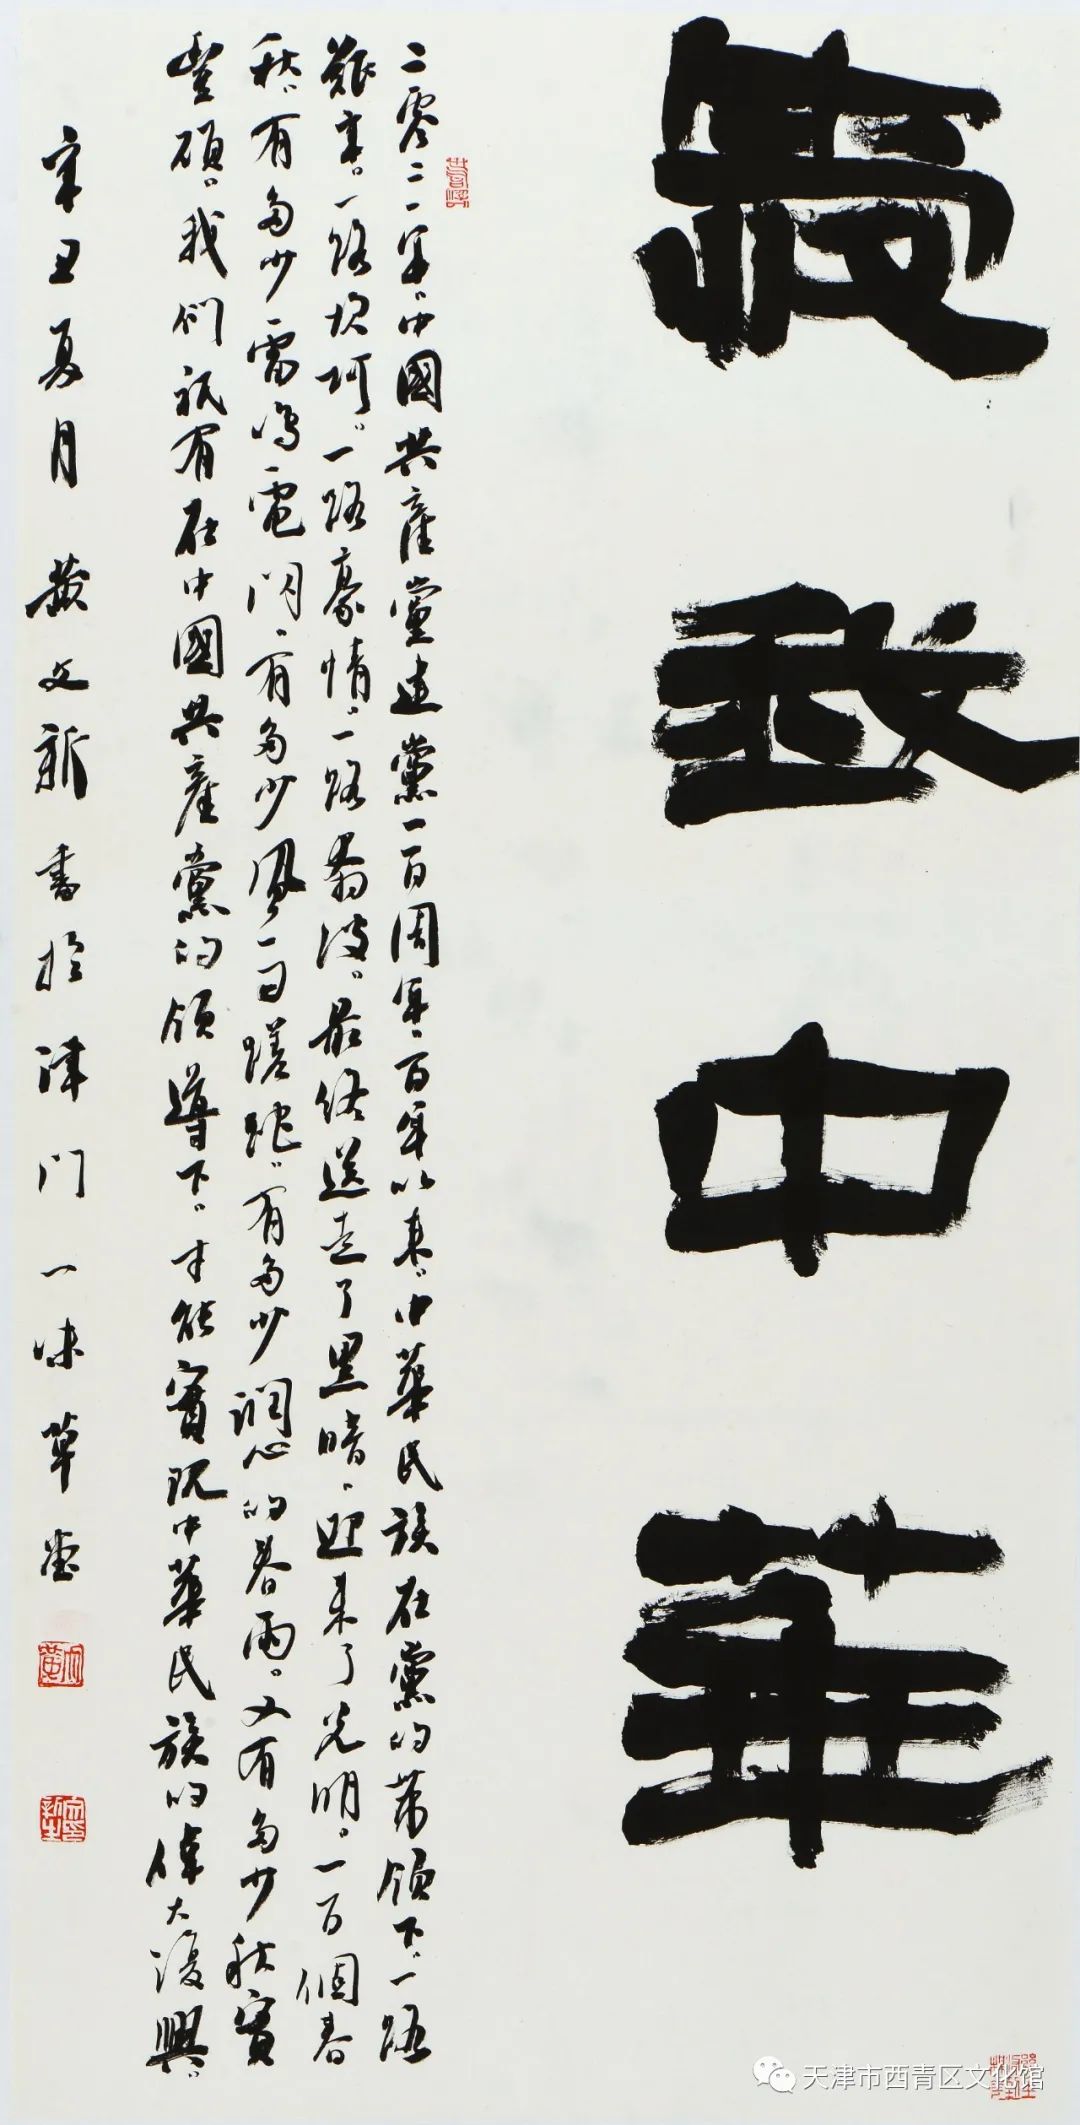 愛我中華
二零二一年。中國共產黨建黨一百周年。百年以来。中華民族在黨的带領下。一路
艱辛。一路坎坷。一路豪情。一路翻波。最终送走了黑暗。迎来了光明。一百個春
秋。有多少雷鸣電閃。有多少風雨蹉跎。有多少潤心的春雨。又有多少秋實
豐碩。我們祇有在中國共產黨的領導下。才能實現中華民族的偉大復興。
辛丑夏月 黄文新書於津門一味草堂
天津市西青区文化馆